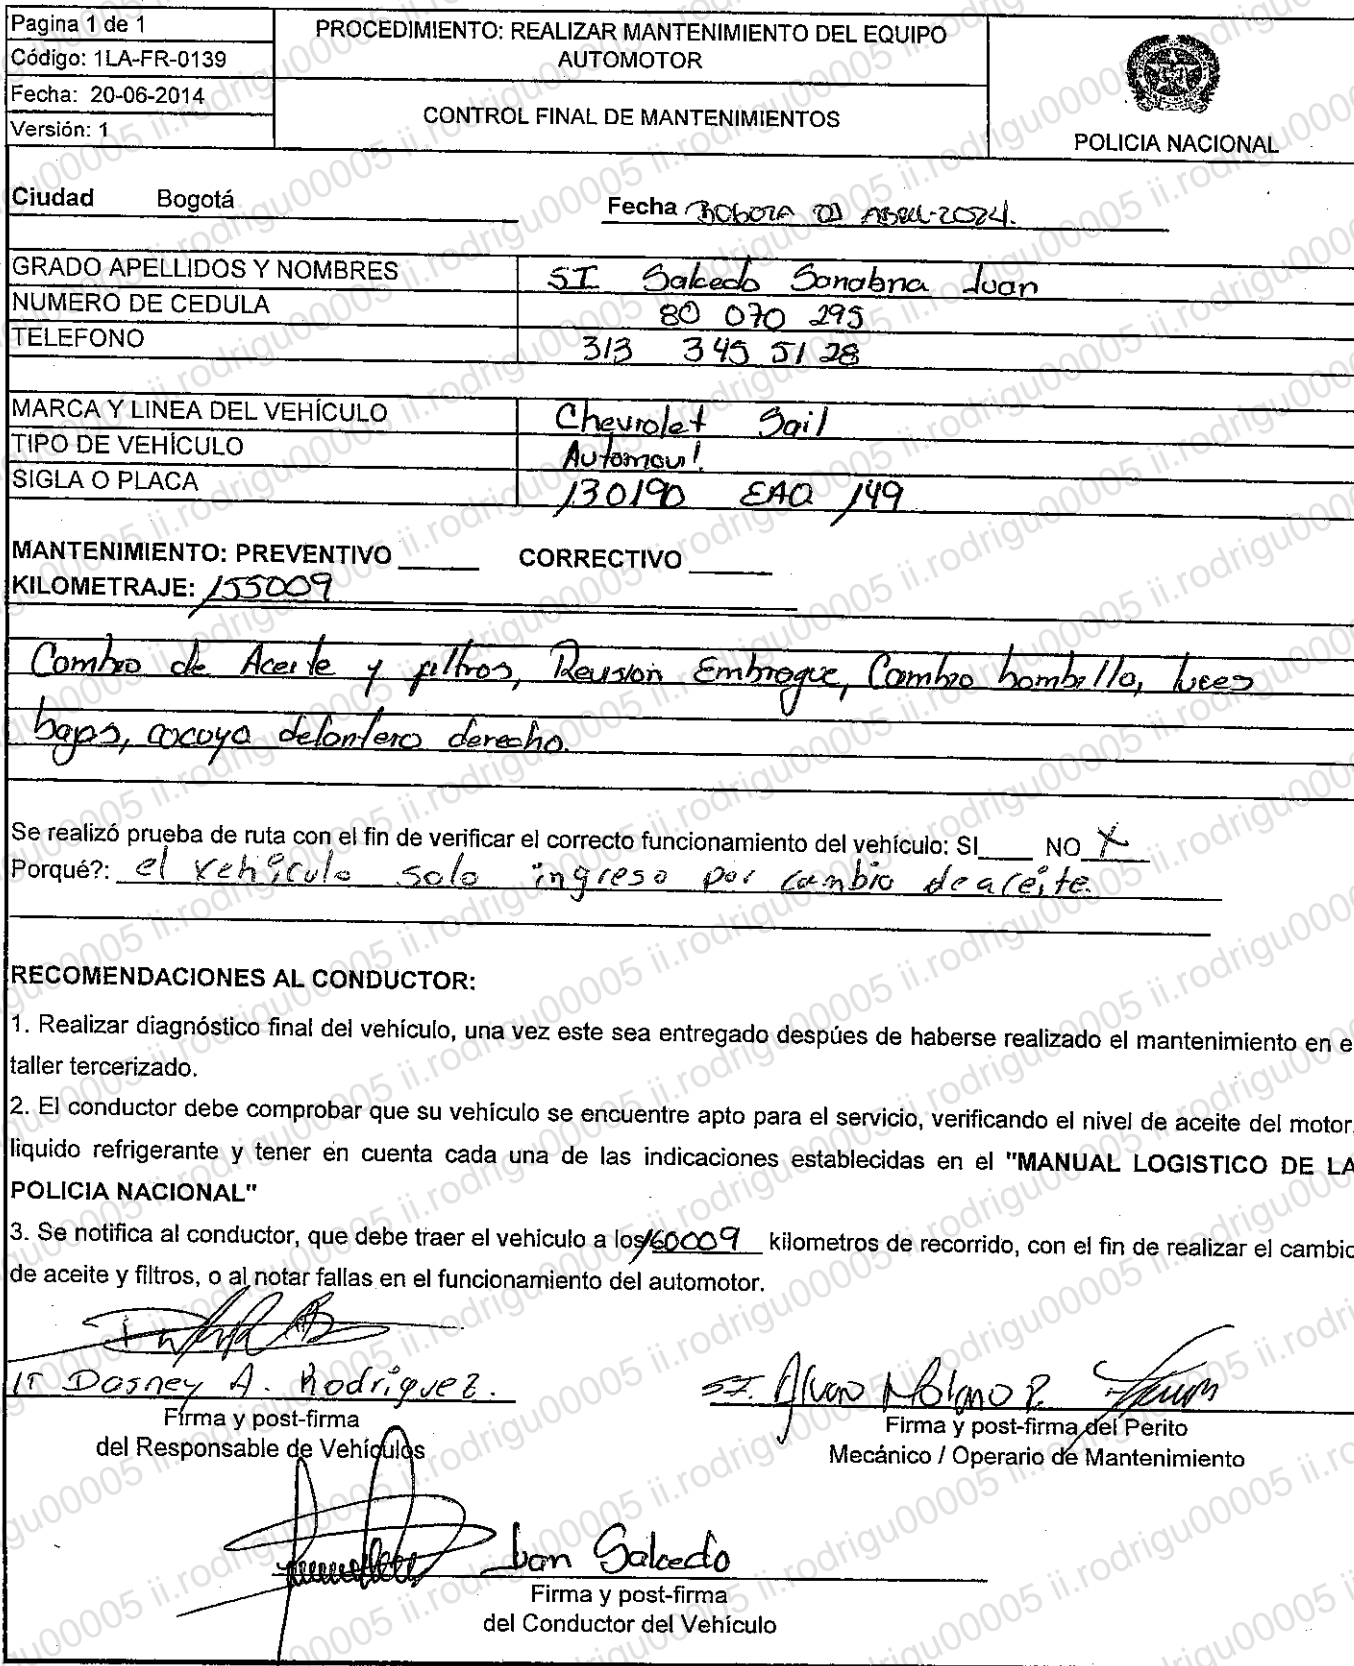 Pagina 1 de 1
Código: 1LA-FR-0139
Fecha: 20-06-2014
Versión: 1
PROCEDIMIENTO: REALIZAR MANTENIMIENTO DEL EQUIPO
AUTOMOTOR
CONTROL FINAL DE MANTENIMIENTOS
POLICIA NACIONAL
Ciudad Bogotá
Fecha BOGOTA ABRIL-2024.
GRADO APELLIDOS Y NOMBRES SI Salcedo Sanabria Juan
NUMERO DE CEDULA 80 070 295
TELEFONO 313 345 5128
MARCA Y LINEA DEL VEHÍCULO Chevrolet Sail
TIPO DE VEHÍCULO Automovil.
SIGLA O PLACA 130190 EAQ 149
MANTENIMIENTO: PREVENTIVO ______ CORRECTIVO ______
KILOMETRAJE: 155009
Cambio de Aceite y filtros, Revision Embrague, Cambio bombillo, luces
bajas, cocuyo delantero derecho.
Se realizó prueba de ruta con el fin de verificar el correcto funcionamiento del vehículo: SI____ NO X
Porqué?: el vehículo solo ingreso por cambio de aceite.
RECOMENDACIONES AL CONDUCTOR:
1. Realizar diagnóstico final del vehículo, una vez este sea entregado despúes de haberse realizado el mantenimiento en e
taller tercerizado.
2. El conductor debe comprobar que su vehículo se encuentre apto para el servicio, verificando el nivel de aceite del motor,
liquido refrigerante y tener en cuenta cada una de las indicaciones establecidas en el "MANUAL LOGISTICO DE LA
POLICIA NACIONAL"
3. Se notifica al conductor, que debe traer el vehiculo a los 160009 kilometros de recorrido, con el fin de realizar el cambio
de aceite y filtros, o al notar fallas en el funcionamiento del automotor.
IT Dosney A. Rodríguez.
Firma y post-firma
del Responsable de Vehículos
SI. Alvaro Molano P.
Firma y post-firma del Perito
Mecánico / Operario de Mantenimiento
Juan Salcedo
Firma y post-firma
del Conductor del Vehículo
ii.rodrigu00005